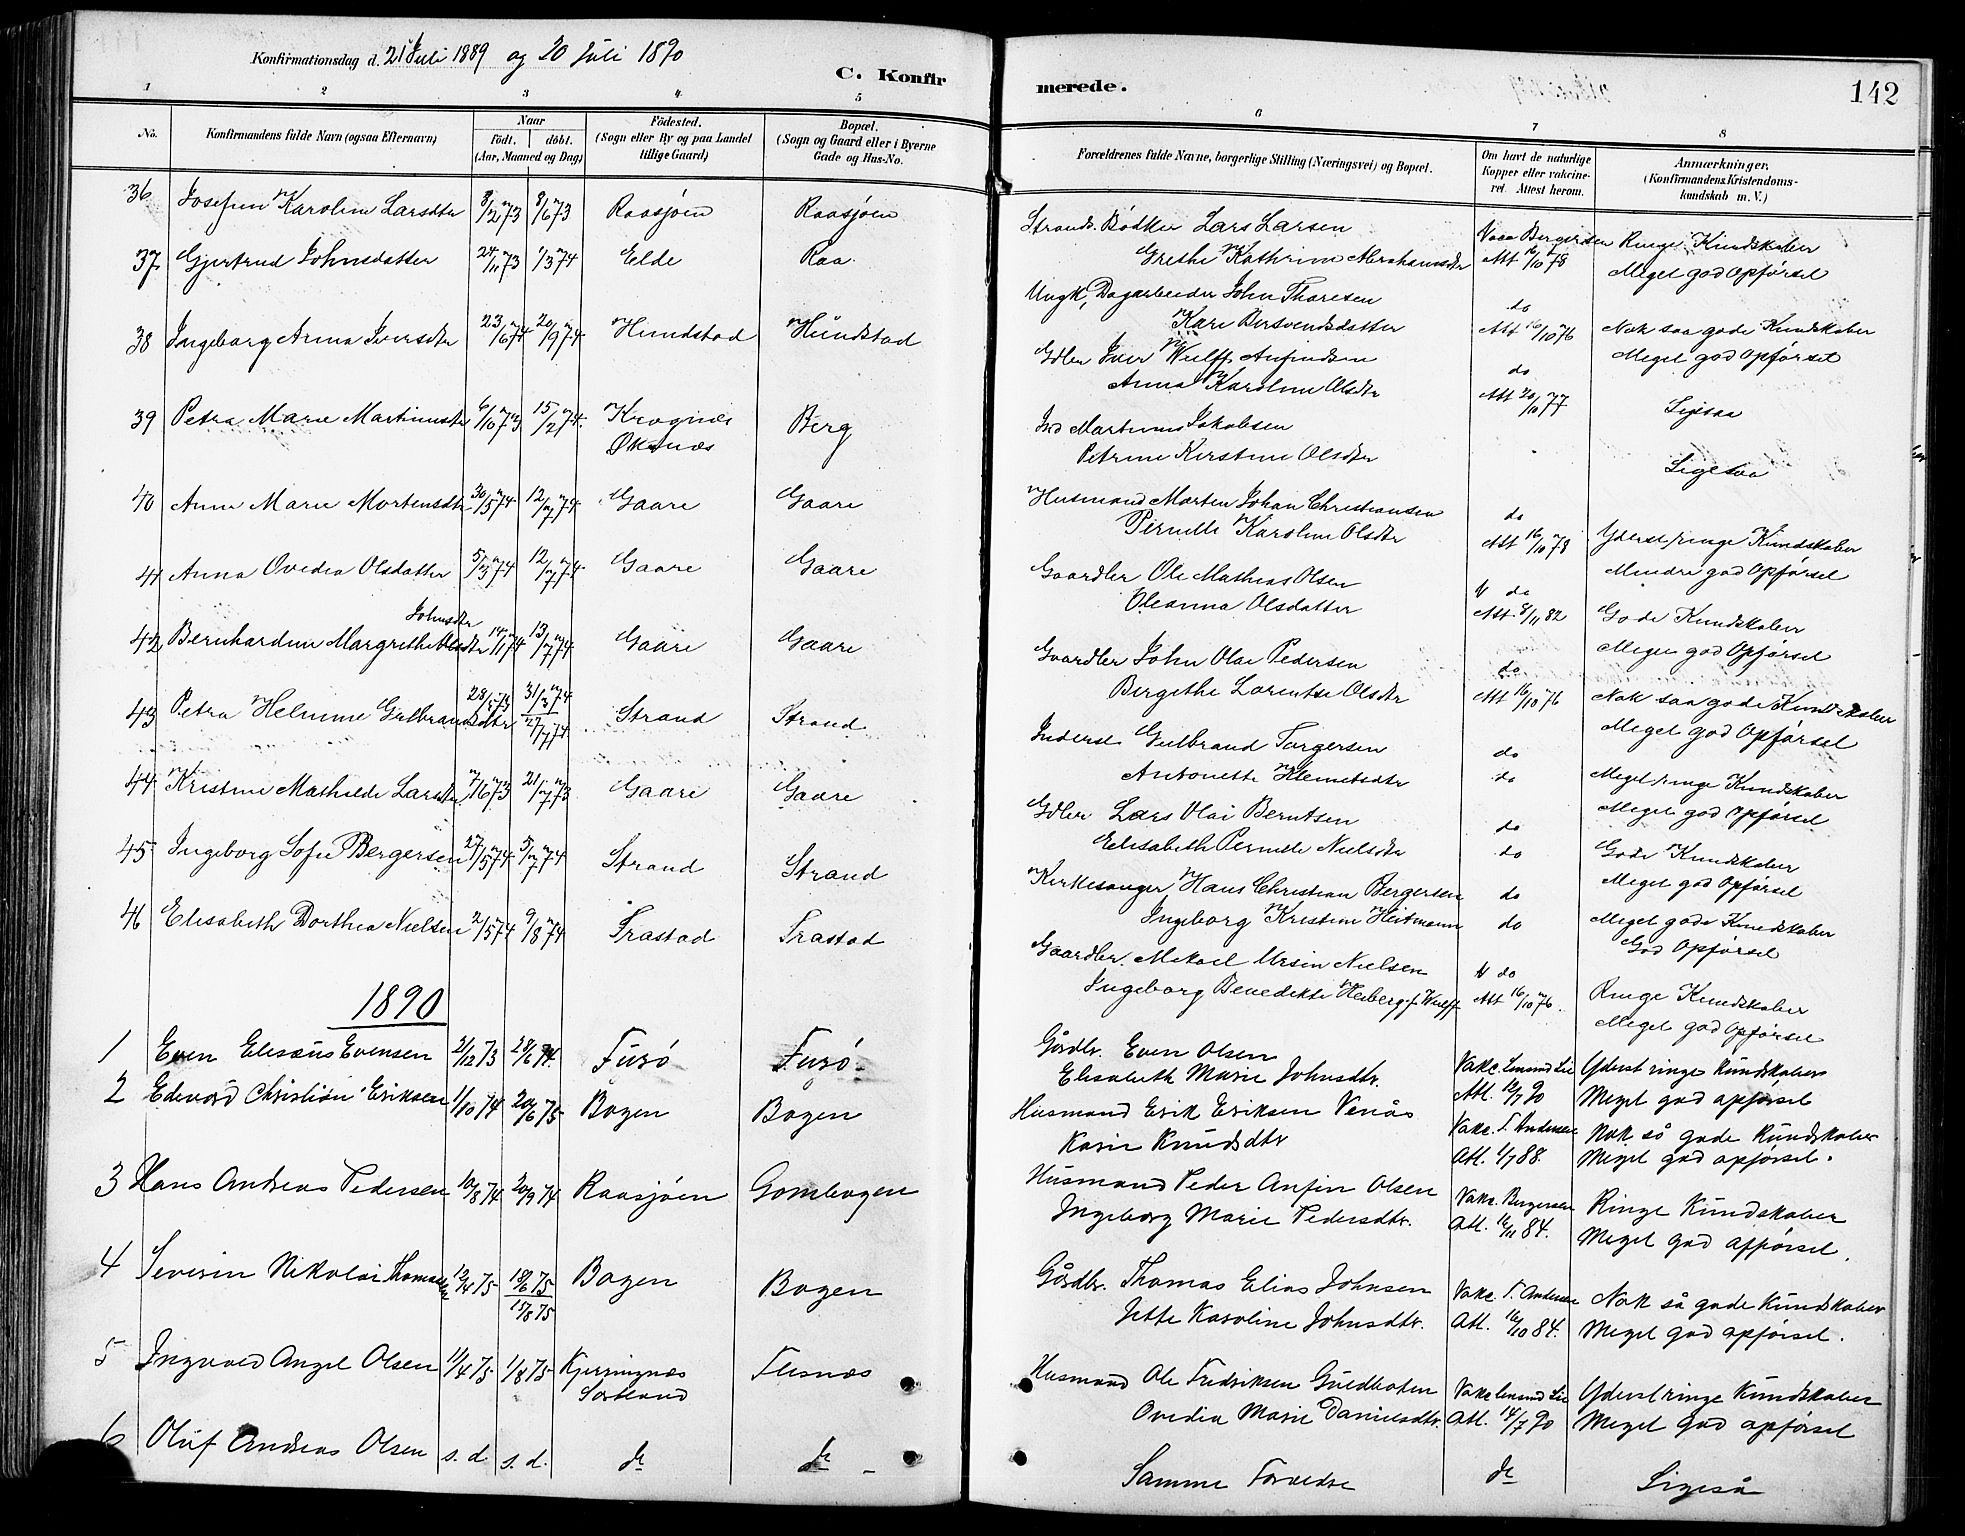 Konfirmationsdag d. 21 Juli 1889 og 20 Juli 1890
C. Konfirmerede.
142
1 2 3 4 5 6 7 8
No.
Konfirmandens fulde Navn (ogsaa Efternavn)
Naar
födt. döbt.
(Aar, Maaned og Dag)
Födested.
(Sogn eller By og paa Landet
tillige Gaard)
Bopæl.
(Sogn og Gaard eller i Byerne
Gade og Hus-No.
Forældrenes fulde Navne, borgerlige Stilling (Næringsvei) og Bopæl.
Om havt de naturlige
Kopper eller vakcine-
ret. Attest herom.
Anmærkninger.
(Konfirmandens Kristendoms-
kundskab m. V.)
36 Josefine Karoline Larsdtr 8/2 73 8/6 73 Raasjøen Raasjøen
Strands. Bødker Lars Larsen
Grethe Kathrine Abrahamsdtr
Vacc Bergersen
Att 16/10 78
Ringe Kundskaber
Meget god Opførsel
37 Gjertrud Johnsdatter 24/11 73 1/3 74 Elde Raa
Ungk, Dagarbeider John Thoresen
Kari Bersvendsdatter
do
Att 16/10 76
Nok saa gode Kundskaber
Meget god Opførsel
38 Ingeborg Anna Iversdtr 23/6 74 20/9 74 Hundstad Hundstad
Gdbr Iver Wulff Anfindsen
Anna Karoline Olsdtr
do
Att 20/10 77
Ligesaa
39 Petra Marie Martinusdtr 6/10 73 15/2 74 Krognæs
Øksnæs
Berg
Ind Martinus Jakobsen
Petrine Kirstine Olsdtr
Ligesaa
40 Anne Marie Mortensdtr 30/5 74 12/7 74 Gaare Gaare
Husmand Morten Johan Christiansen
Pernille Karoline Olsdtr
do
Att 16/10 78
Yderst ringe Kundskaber
Mindre god Opførsel
41 Anna Ovedia Olsdatter 5/3 74 12/7 74 Gaare Gaare
Gaardbr Ole Mathias Olsen
Oleanna Olsdatter
do
Att 8/11 82
Gode Kundskaber
Meget god Opførsel
Johnsdtr
42 Bernhardine Margrethe 14/1 74 13/7 74 Gaare Gaare
Gaardbr John Olai Pedersen
Bergithe Lorentse Olsdtr
do
Att 16/10 76
Nok saa gode Kundskaber
Meget god Opførsel
43 Petra Helmine Gulbrandsdtr 28/5 73 31/3 74
27/7 74
Strand Strand
Inderst Gulbrand Torgersen
Antonette Klemetsdtr
do
do
Meget ringe Kundskaber
Meget god Opførsel
44 Kristine Mathilde Larsdtr 7/6 73 21/7 73 Gaare Gaare
Gdbr Lars Olai Berntsen
Elisabeth Pernille Nielsdtr
do
do
Gode Kundskaber
Meget god Opførsel
45 Ingeborg Sofie Bergersen 27/5 74 5/7 74 Strand Strand
Kirkesanger Hans Christian Bergersen
Ingeborg Kristine Heitmann
do
do
Meget gode Kundskaber
God Opførsel
46 Elisabeth Dorthea Nielsen 2/5 74 9/8 74 Frastad Frastad
Gaardbr. Mikael Ursin Nielsen
Ingeborg Benedikte Heiberg f. Wulff
do
Att 16/10 76.
Ringe Kundskaber
Meget god Opførsel
1890
1 Even Elisæus Evensen 21/12 73 28/6 74. Furø Furø
Gårdbr. Even Olsen
Elisabeth Marie Johnsdtr.
Vakc. Lensmd Lie
Att. 12/7 90
Yderst ringe Kundskaber
Meget god opførsel
2 Edvard Christian Eriksen 1/10 74 20/6 75 Bogen Bogen
Husmand Erik Eriksen Venås
Karie Knudsdtr
Vakc. T. Andersen
Att. 1/7 88.
Nok så gode Kundskaber
Meget god opførsel.
3 Hans Andreas Pedersen 10/8 74 20/9 74 Raasjøen Gombogen
Husmand Peder Anfin Olsen
Ingeborg Marie Pedersdtr.
Vakc. Bergersen
Att. 16/11 84.
Ringe Kundskaber
Meget god opførsel.
4 Severin Nikolai Thomassen 12/4 75 18/6 75
15/8 75
Bogen Bogen
Gårdbr. Thomas Elias Johnsen
Jette Karoline Johnsdtr.
Vakc. T. Andersen
Att. 16/10 84.
Nok så gode Kundskaber
Meget god opførsel.
5 Ingvald Angel Olsen 11/4 75 1/8 75 Kjerringnæs
Sortland
Flesnæs
Husmand Ole Fredriksen Guldholen
Ovedia Marie Danielsdtr.
Vakc Lensmd Lie
Att. 14/7 90
Yderst ringe Kundskaber
Meget god opførsel
6 Oluf Andreas Olsen s. d. s. d. do do
Samme Forældre
do
Ligeså